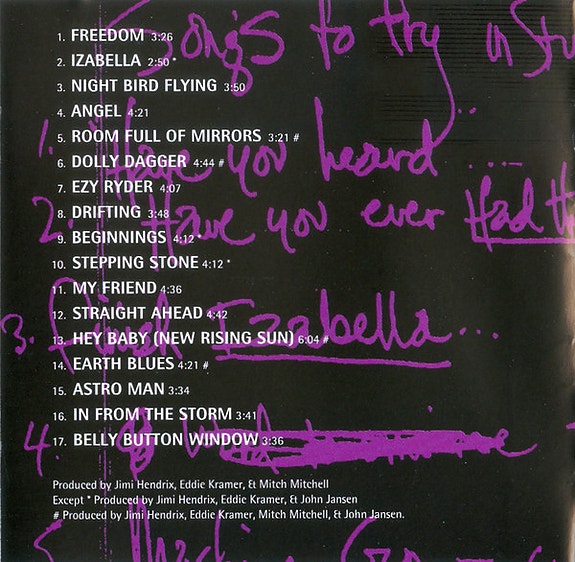 Songs to try in Stu
1. FREEDOM 3:26
2. IZABELLA 2:50 *
3. NIGHT BIRD FLYING 3:50
4. ANGEL 4:21
5. ROOM FULL OF MIRRORS 3:21 #
6. DOLLY DAGGER 4:44 #
7. EZY RYDER 4:07
8. DRIFTING 3:48
9. BEGINNINGS 4:12 *
10. STEPPING STONE 4:12 *
11. MY FRIEND 4:36
12. STRAIGHT AHEAD 4:42
13. HEY BABY (NEW RISING SUN) 6:04 #
14. EARTH BLUES 4:21 #
15. ASTRO MAN 3:34
16. IN FROM THE STORM 3:41
17. BELLY BUTTON WINDOW 3:36
1. Have you heard ....
2. Have you ever Had th
3. Finish Izabella...
4.
5.
Produced by Jimi Hendrix, Eddie Kramer, & Mitch Mitchell
Except * Produced by Jimi Hendrix, Eddie Kramer, & John Jansen
# Produced by Jimi Hendrix, Eddie Kramer, Mitch Mitchell, & John Jansen.